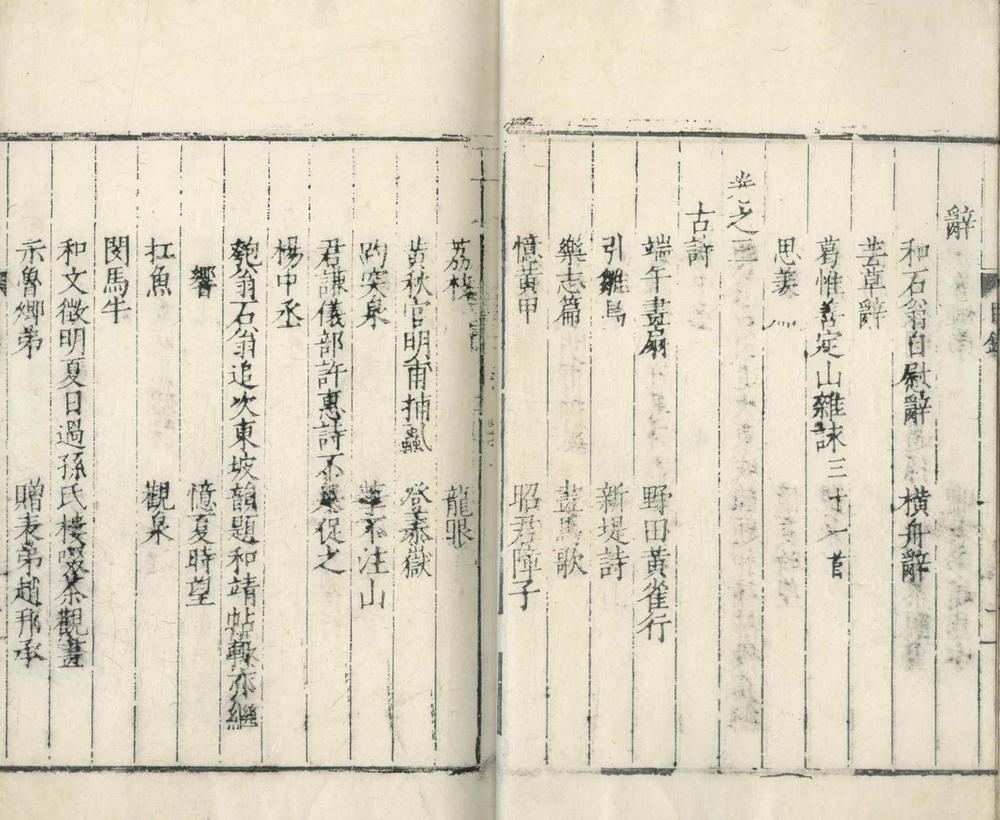 目錄
辭
和石翁自慰辭 橫舟辭
芸草辭
葛惟善定山雜詠三十一首
思羲
卷之三
古詩
端午畫扇 野田黃雀行
引雛鳥 新堤詩
樂志篇 畫馬歌
憶黃甲 昭君障子
荔枝 龍眼
黃秋官明甫捕蝨 登泰嶽
趵突泉 華不注山
君謙儀部許惠詩不與促之
楊中丞
匏翁石翁追次東坡韻題和靖帖輙亦繼
響 憶夏時望
扛魚 觀泉
閔馬牛
和文徵明夏日過孫氏樓啜茶觀畫
示魯鄉弟 贈表弟趙邦承